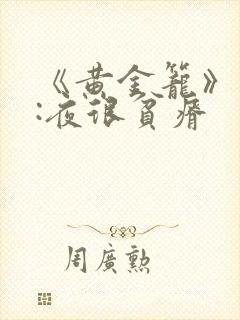 《黄金籠》
:夜很貧瘠
周廣勲